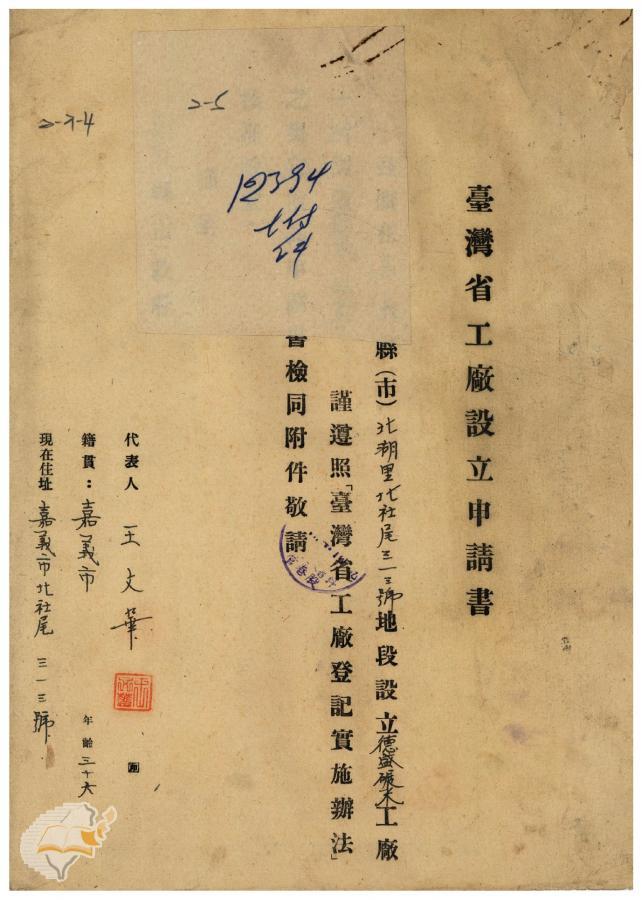 臺灣省工廠設立申請書
縣(市)北湖里北社尾三一三號地段設立德盛碾米工廠
謹遵照「臺灣省工廠登記實施辦法」
書檢同附件敬請
代表人 王文華
籍貫：嘉義市 年齡三十六
現在住址 嘉義市北社尾三一三號
2-5
12394